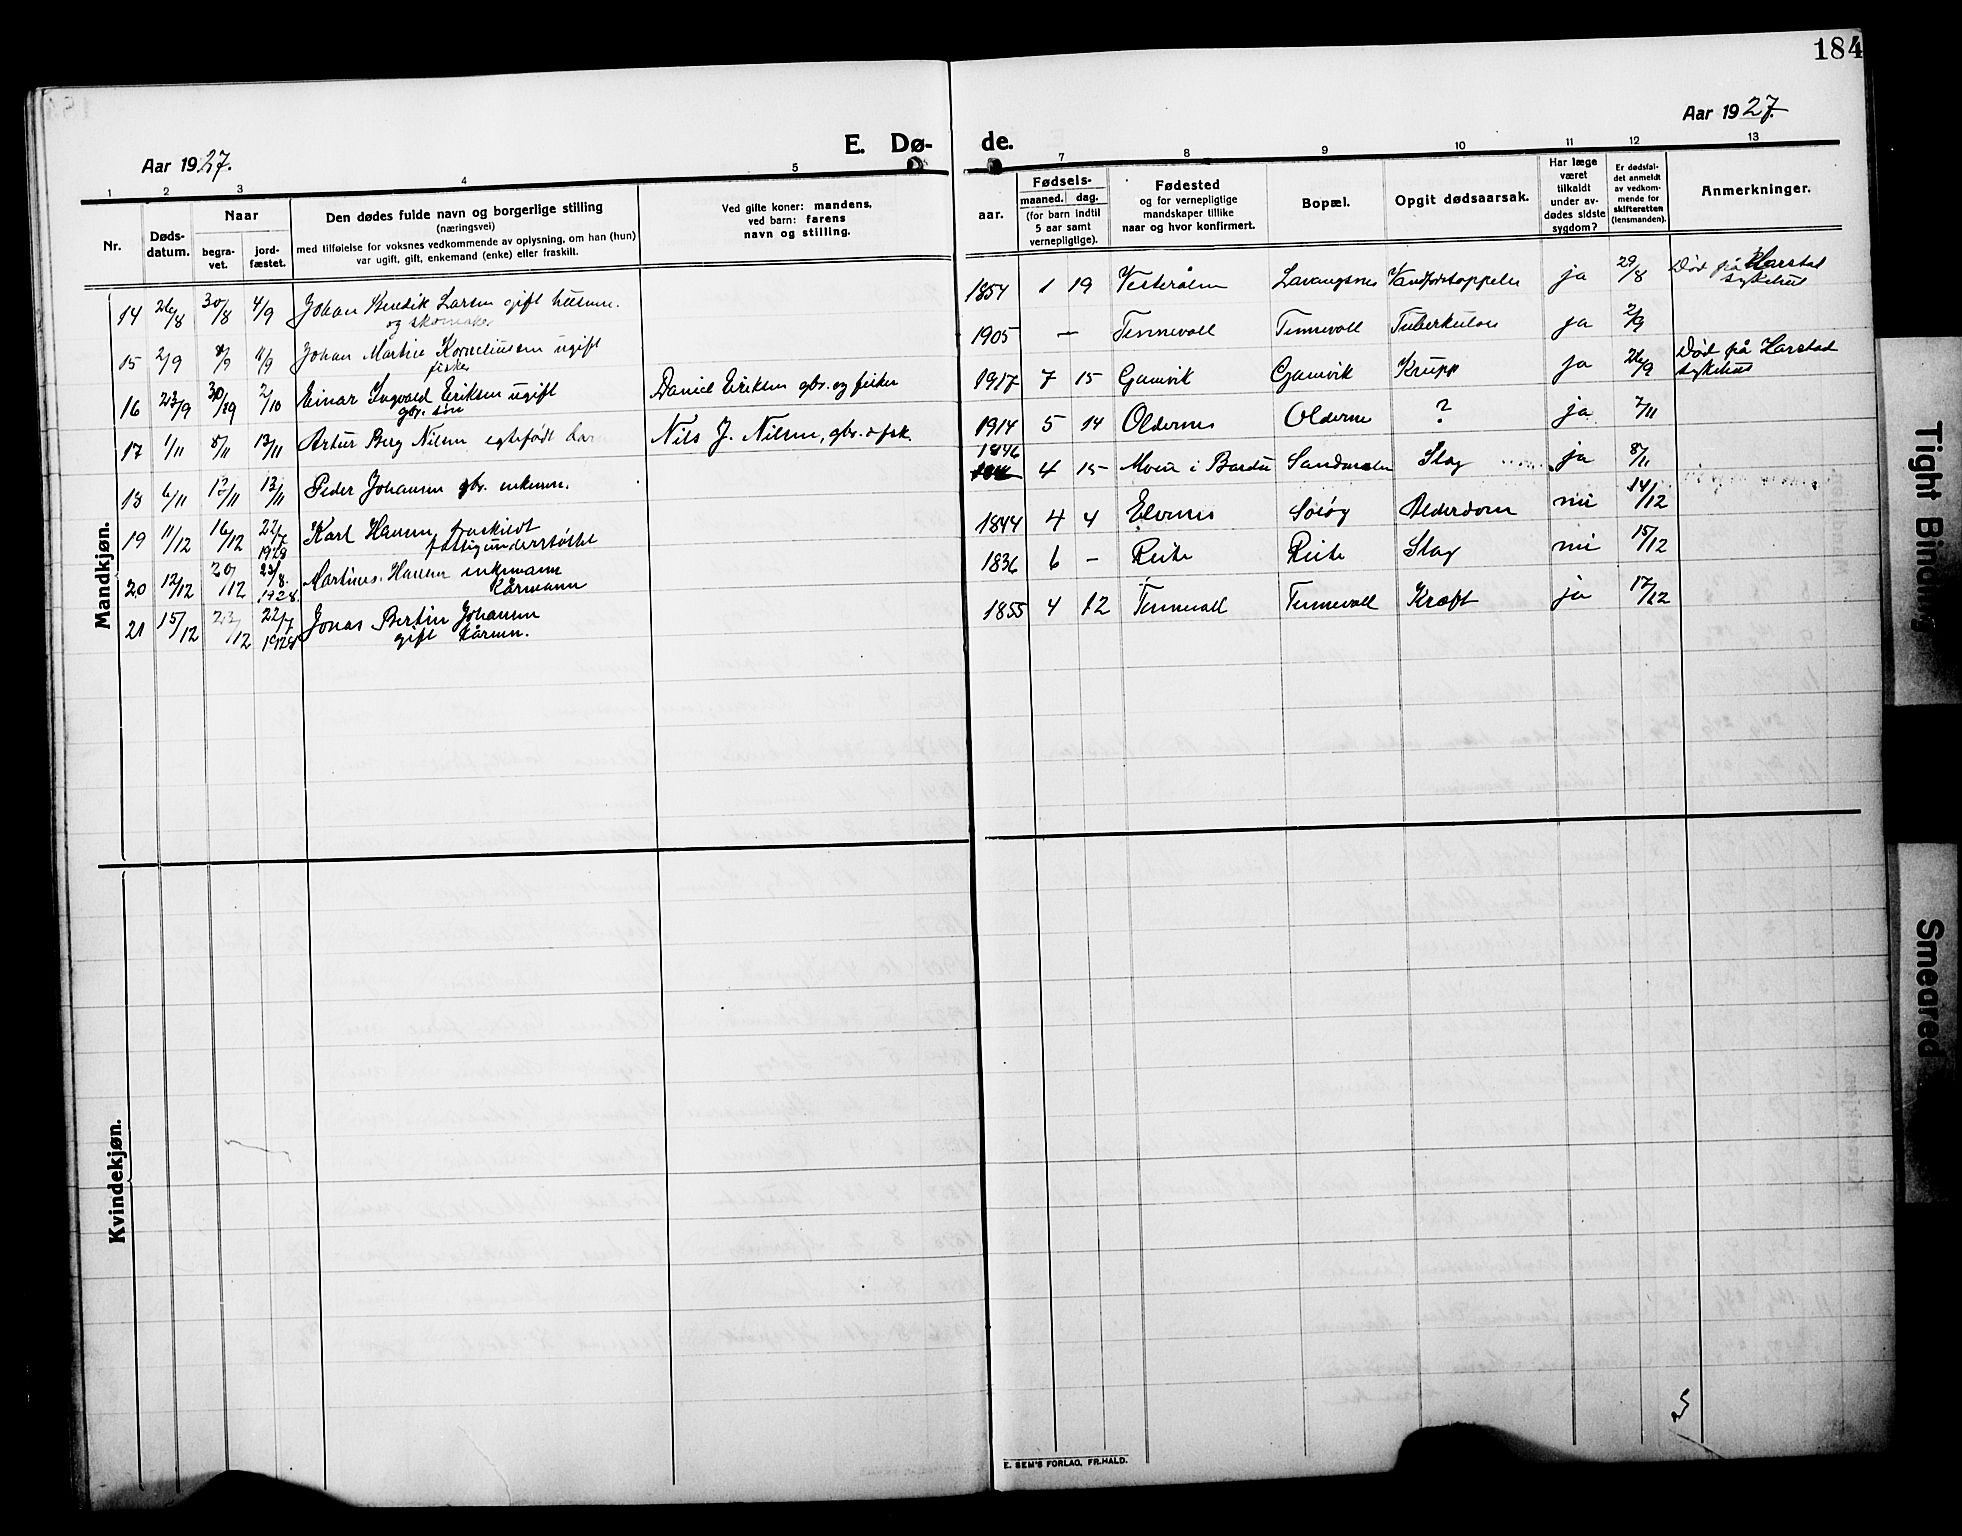 184
Aar 1927.
E. Dø-
de.
Aar 1927.
1 2 3 4 5 7 8 9 10 11 12 13
Nr.
Døds-
datum.
Naar
begra-
vet.
jord-
fæstet.
Den dødes fulde navn og borgerlige stilling
(næringsvei)
med tilføielse for voksnes vedkommende av oplysning, om han (hun)
var ugift, gift, enkemand (enke) eller fraskilt.
Ved gifte koner: mandens,
ved barn: farens
navn og stilling.
Fødsels-
aar.
maaned. dag.
(for barn indtil
5 aar samt
vernepligtige).
Fødested
og for vernepligtige
mandskaper tillike
naar og hvor konfirmert.
Bopæl.
Opgit dødsaarsak.
Har læge
været
tilkaldt
under av-
dødes sidste
sygdom?
Er dødsfal-
det anmeldt
av vedkom-
mende for
skifteretten
(lensmanden).
Anmerkninger.
Mandkjøn.
14 26/8 30/8 4/9 Johan Bendik Larsen gift husmn. 1854 1 19 Vesterålen Lavangsnes ja 29/8 Død på Harstad
og skomaker sykehus
15 2/9 11/9 Johan Martin Korneliussen ugift 1905 — Tennevoll Tennevoll Tuberkulose ja 2/9
fisker
16 23/9 2/10 Einar Ingvald Eriksen ugift Daniel Eriksen gbr. og fisker 1917 7 15 Gamvik Gamvik Krupp ja 26/9 Død på Harstad
gbr. søn sykehus
17 1/11 8/11 13/11 Artur Berg Nilsen egtefødt barn Nils J. Nilsen, gbr. o fisk. 1914 5 14 Oldernes Olderne ? ja 7/11
18 6/11 12/11 13/11 Peder Johansen gbr. enkemn. 1846 4 15 Moen i Bardu Slag ja 8/11
19 11/12 16/12 22/7 1928 Karl Hansen, fraskilt 1844 4 4 Elvenes Soløy Alderdom nei 14/12
fattigunderstøttet
20 12/12 20/12 23/8. 1928. Martinus Hansen enkemann 1836 6 - Reite Reite Slag nei 15/12
Kårmann
21 15/12 22/7 1928 Jonas Bertin Johansen 1855 4 12 Tennevoll Tennevoll Kræft ja 17/12
gift kårmn.
Kvindekjøn.
E. SEM'S FORLAG, FR.HALD.
Tight Binding
Smeared